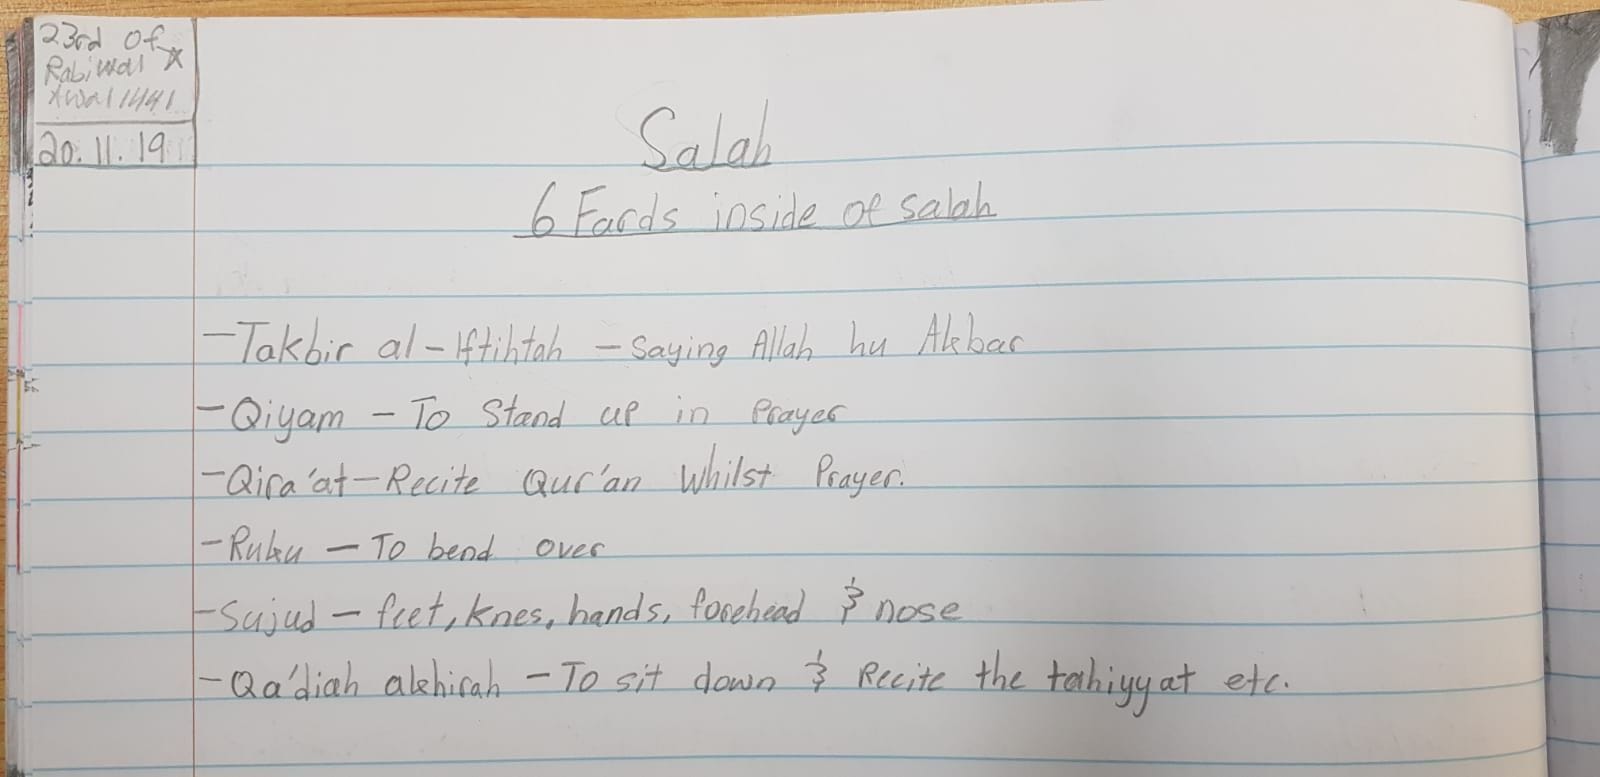 23rd of
Rabiwal
Awal 1441
20.11.19
Salah
6 Fards inside of salah
-Takbir al-Iftihtah - saying Allah hu Akbar
-Qiyam - To Stand up in Prayer
-Qira'at-Recite Qur'an Whilst Prayer.
-Ruku - To bend over
-Sujud - feet, knes, hands, forehead & nose
-Qa'diah akhirah - To sit down & Recite the tahiyyat etc.